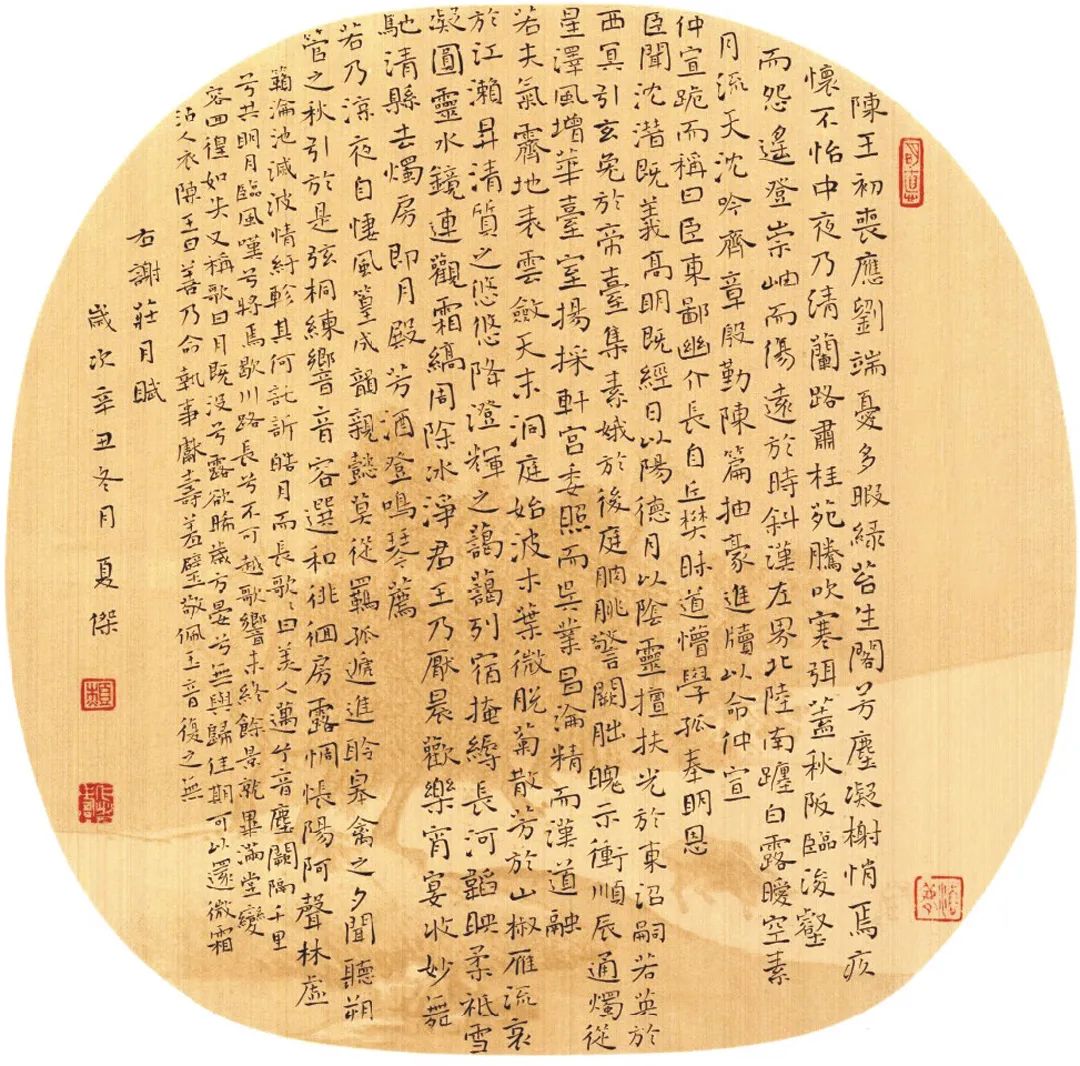 陳王初喪應劉端憂多暇綠苔生閣芳塵凝榭悄焉疚
懷不怡中夜乃清蘭路肅桂苑騰吹寒弭蓋秋阪臨浚壑
而怨遙登崇岫而傷遠於時斜漢左界北陸南躔白露曖空素
月流天沈吟齊章殷勤陳篇抽豪進牘以命仲宣
仲宣跪而稱曰臣東鄙幽介長自丘樊昧道懵學孤奉明恩
臣聞沈潛既義高明既經日以陽德月以陰靈擅扶光於東沼嗣若英於
西冥引玄兔於帝臺集素娥於後庭朒朓警闕朏魄示衝順辰通燭從
星澤風增華臺室揚採軒宮委照而吳業昌淪精而漢道融
若夫氣霽地表雲斂天末洞庭始波木葉微脫菊散芳於山椒雁流哀
於江瀨昇清質之悠悠降澄輝之藹藹列宿掩縟長河韜映柔祇雪
凝圓靈水鏡連觀霜縞周除冰淨君王乃厭晨歡樂宵宴收妙舞
馳清縣去燭房即月殿芳酒登鳴琴薦
若乃涼夜自悽風篁成韻親懿莫從羈孤遞進聆皋禽之夕聞聽朔
管之秋引於是弦桐練響音容選和徘徊房露惆悵陽阿聲林虛
籟淪池滅波情紆軫其何託訴皓月而長歌〻曰美人邁兮音塵闕隔千里
兮共明月臨風嘆兮將焉歇川路長兮不可越歌響未終餘景就畢滿堂變
容回徨如失又稱歌曰月既沒兮露欲晞歲方晏兮無與歸佳期可以還微霜
沾人衣陳王曰善乃命執事獻壽羞璧敬佩玉音復之無
右謝莊月賦
歲次辛丑冬月夏傑